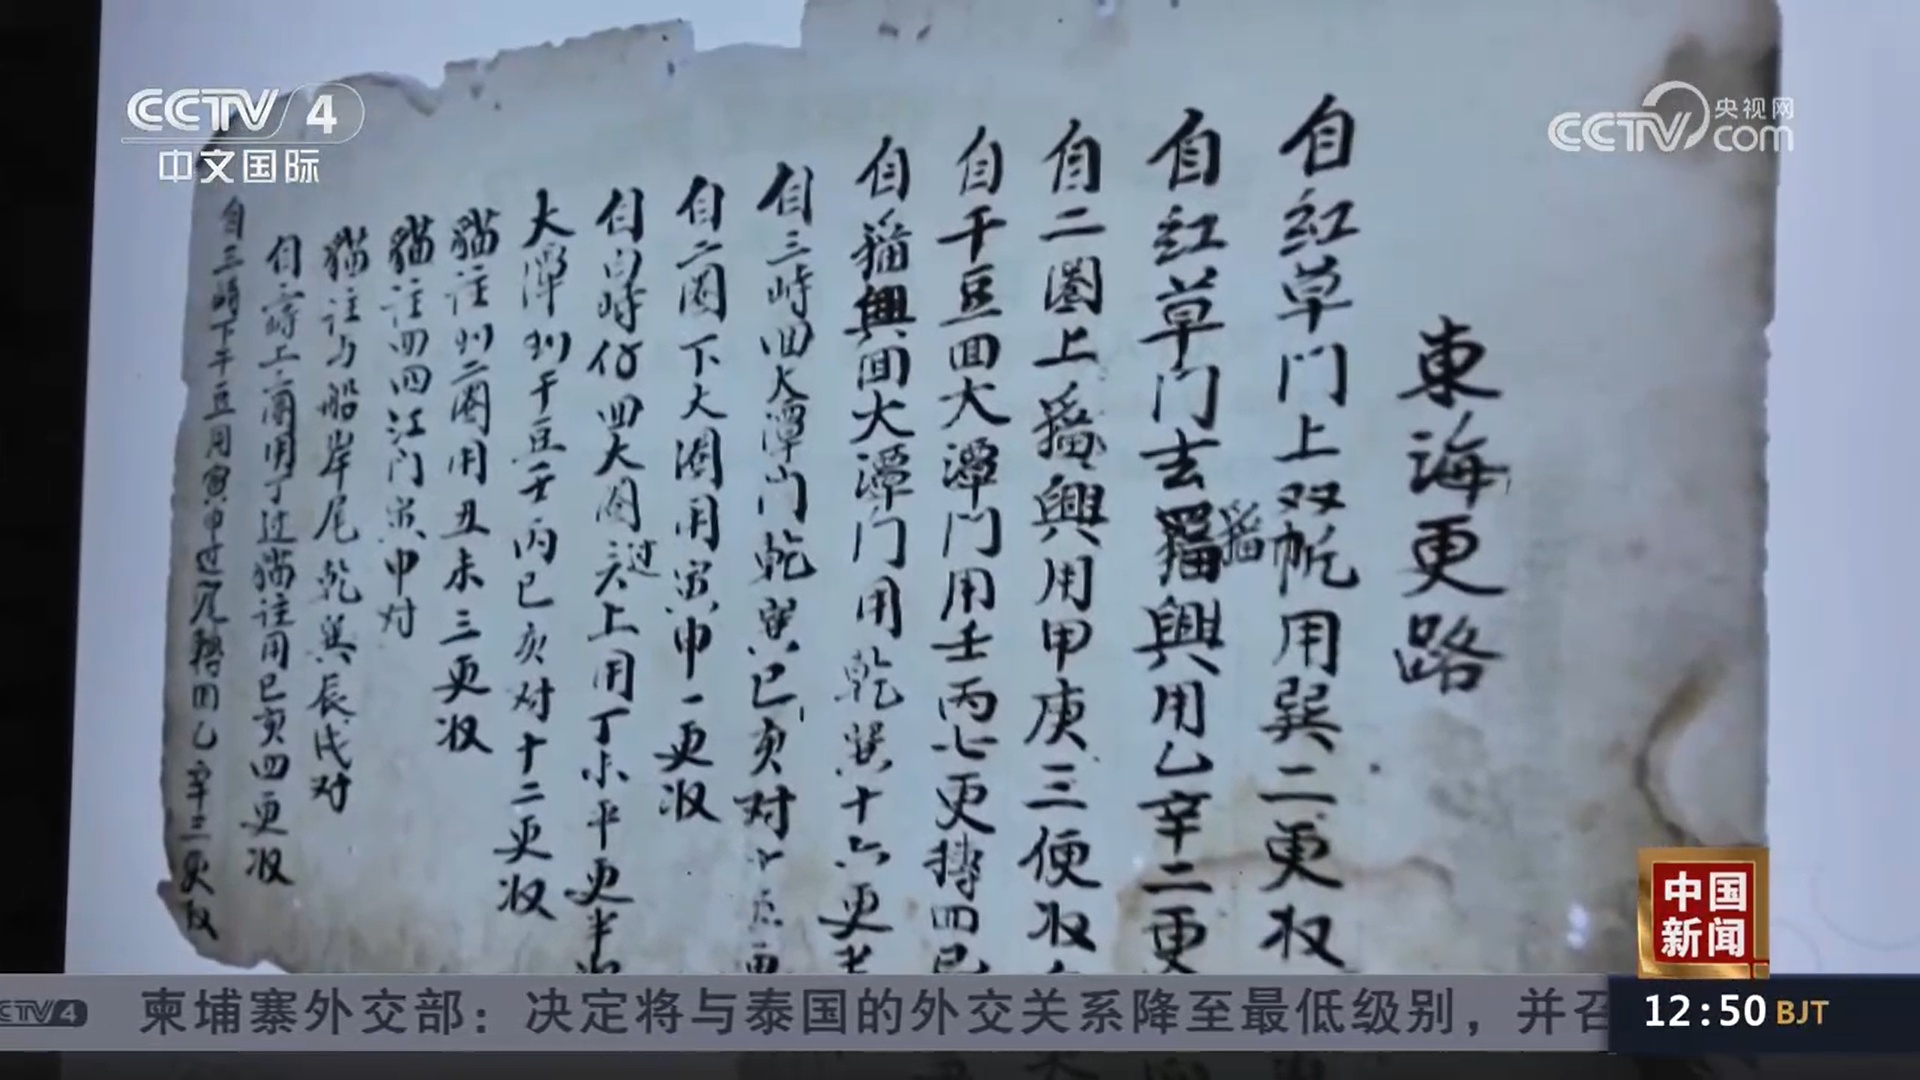 CCTV 4
中文国际
央视网
CCTV com
東海更路
自红草门上双帆用巽二更收
自红草门去猫興用乙辛二更
猫
自二圈上猫興用甲庚三便收
自干豆回大潭门用壬丙七更摶四巳
自猫興回大潭门用乾巽十六更
自三峙回大潭门乾巽巳亥对
自二圈下大圈用寅申一更收
自白峙仔回大圈上用丁未平更半
过
大潭到干豆壬丙巳亥对十二更收
猫注到二圈用丑未三更收
猫注回四江门寅申对
猫注与船岸尾乾巽辰戌对
自三峙上用丁过猫注用巳亥四更收
自三峙下干豆用寅申过尾轉回乙辛三更收
中国
新闻
CCTV 4
柬埔寨外交部：决定将与泰国的外交关系降至最低级别，并召
12:50 BJT